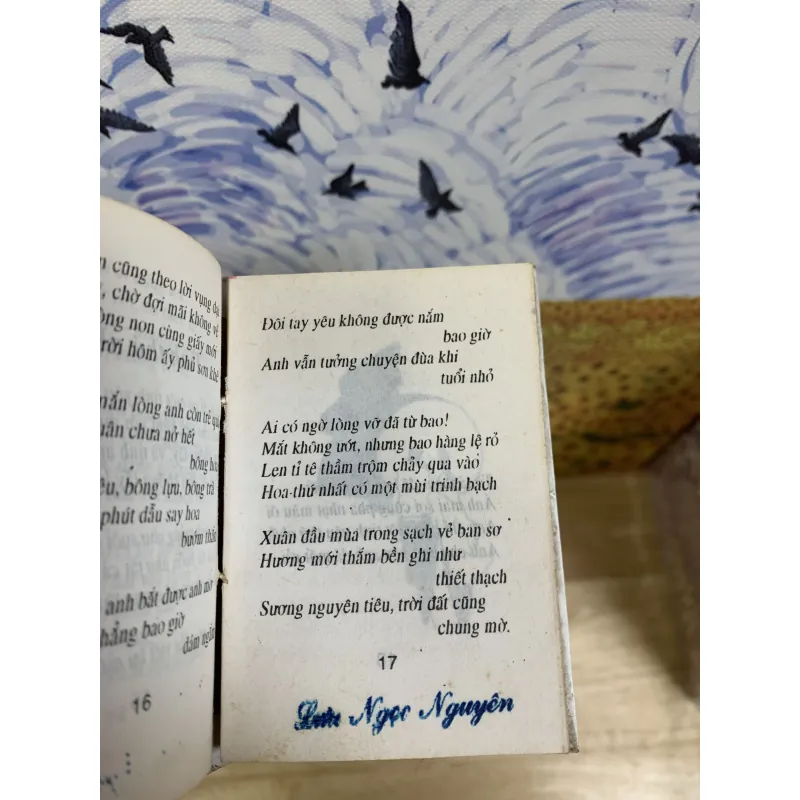 cũng theo lời vụng dại
chờ đợi mãi không về
non cùng giấy mới
hôm ấy phủ sơn khê
lòng anh còn trẻ quá
chưa nở hết
bông hoa
bông lựu, bông trà
phút đầu say hoa
bướm thắm
anh bắt được anh mơ
bao giờ
đám ngăn
16
Đôi tay yêu không được nắm
bao giờ
Anh vẫn tưởng chuyện đùa khi
tuổi nhỏ
Ai có ngờ lòng vỡ đã từ bao!
Mắt không ướt, nhưng bao hàng lệ rỏ
Len tỉ tê thầm trộm chảy qua vào
Hoa-thứ nhất có một mùi trinh bạch
Xuân đầu mùa trong sạch vẻ ban sơ
Hương mới thắm bền ghi như
thiết thạch
Sương nguyên tiêu, trời đất cũng
chung mờ.
17
Lưu Ngọc Nguyên